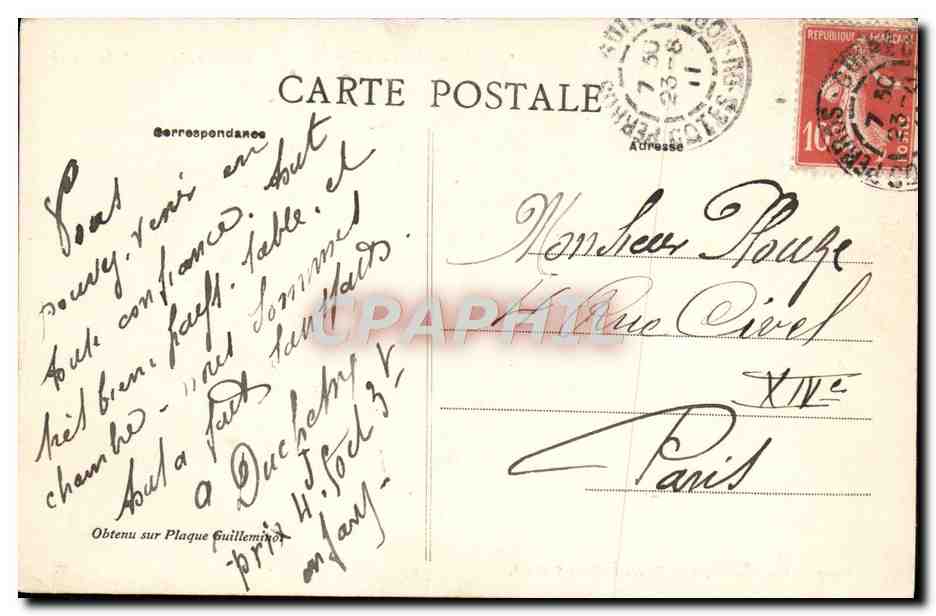 CARTE POSTALE
Correspondance
Adresse
REPUBLIQUE FRANÇAISE
10
7 30
23-8
11
7 30
23-8
11
Vous
pouvez venir en
toute confiance. tout
très bien. table. et
chambre - nous sommes
tout a fait satisfaits.
a Duchemy
prix 4f.50 et 3f
enfant-
Monsieur Plouze
4 Rue Civel
XIVe
Paris
Obtenu sur Plaque Guilleminot
CPAPHIL